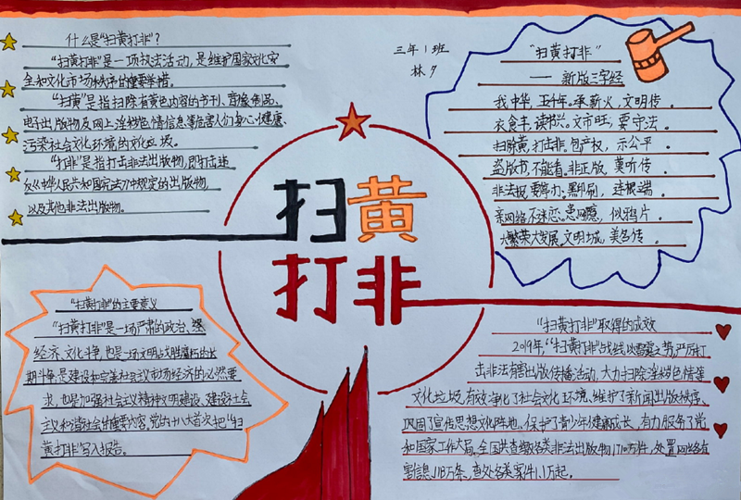 什么是“扫黄打非”?
“扫黄打非”是一项执法活动,是维护国家文化安
全和文化市场秩序的重要举措。
“扫黄”是指扫除有黄色内容的书刊、音像制品、
电子出版物及网上淫秽色情信息等危害人们身心健康、
污染社会文化环境的文化垃圾。
“打非”是指打击非法出版物,即打击违
反《中华人民共和国宪法》中规定的出版物,
以及其他非法出版物。
三年1班
林
“扫黄打非”
—— 新版三字经
我中华,五千年。承薪火,文明传。
衣食丰,读书兴。文市旺,要守法。
扫除黄,打击非。包产权,示公平。
盗版书,不能看。非正版,莫听传。
非法报,要举办。黑印刷,连根端。
亲网络,不迷恋。患网瘾,似鸦片。
大繁荣,大发展。文明城,美名传。
扫黄
打非
“扫黄打非”的主要意义
“扫黄打非”是一场严肃的政治、
经济、文化斗争,也是一场文明战胜腐朽的长
期斗争,是建设和完善社会主义市场经济的必然要
求,也是加强社会主义精神文明建设、建设社会
主义和谐社会的重要内容,党的十八大首次把“扫
黄打非”写入报告。
“扫黄打非”取得的成效
2019年,“扫黄打非”战线以雷霆之势,严厉打
击非法有害出版传播活动,大力扫除淫秽色情等
文化垃圾,有效净化了社会文化环境,维护了新闻出版秩序、
巩固了宣传思想文化阵地、保护了青少年健康成长,有力服务了党
和国家工作大局。全国共查缴各类非法出版物1710万件,处置网络有
害信息1118万条,查处各类案件1.1万起。